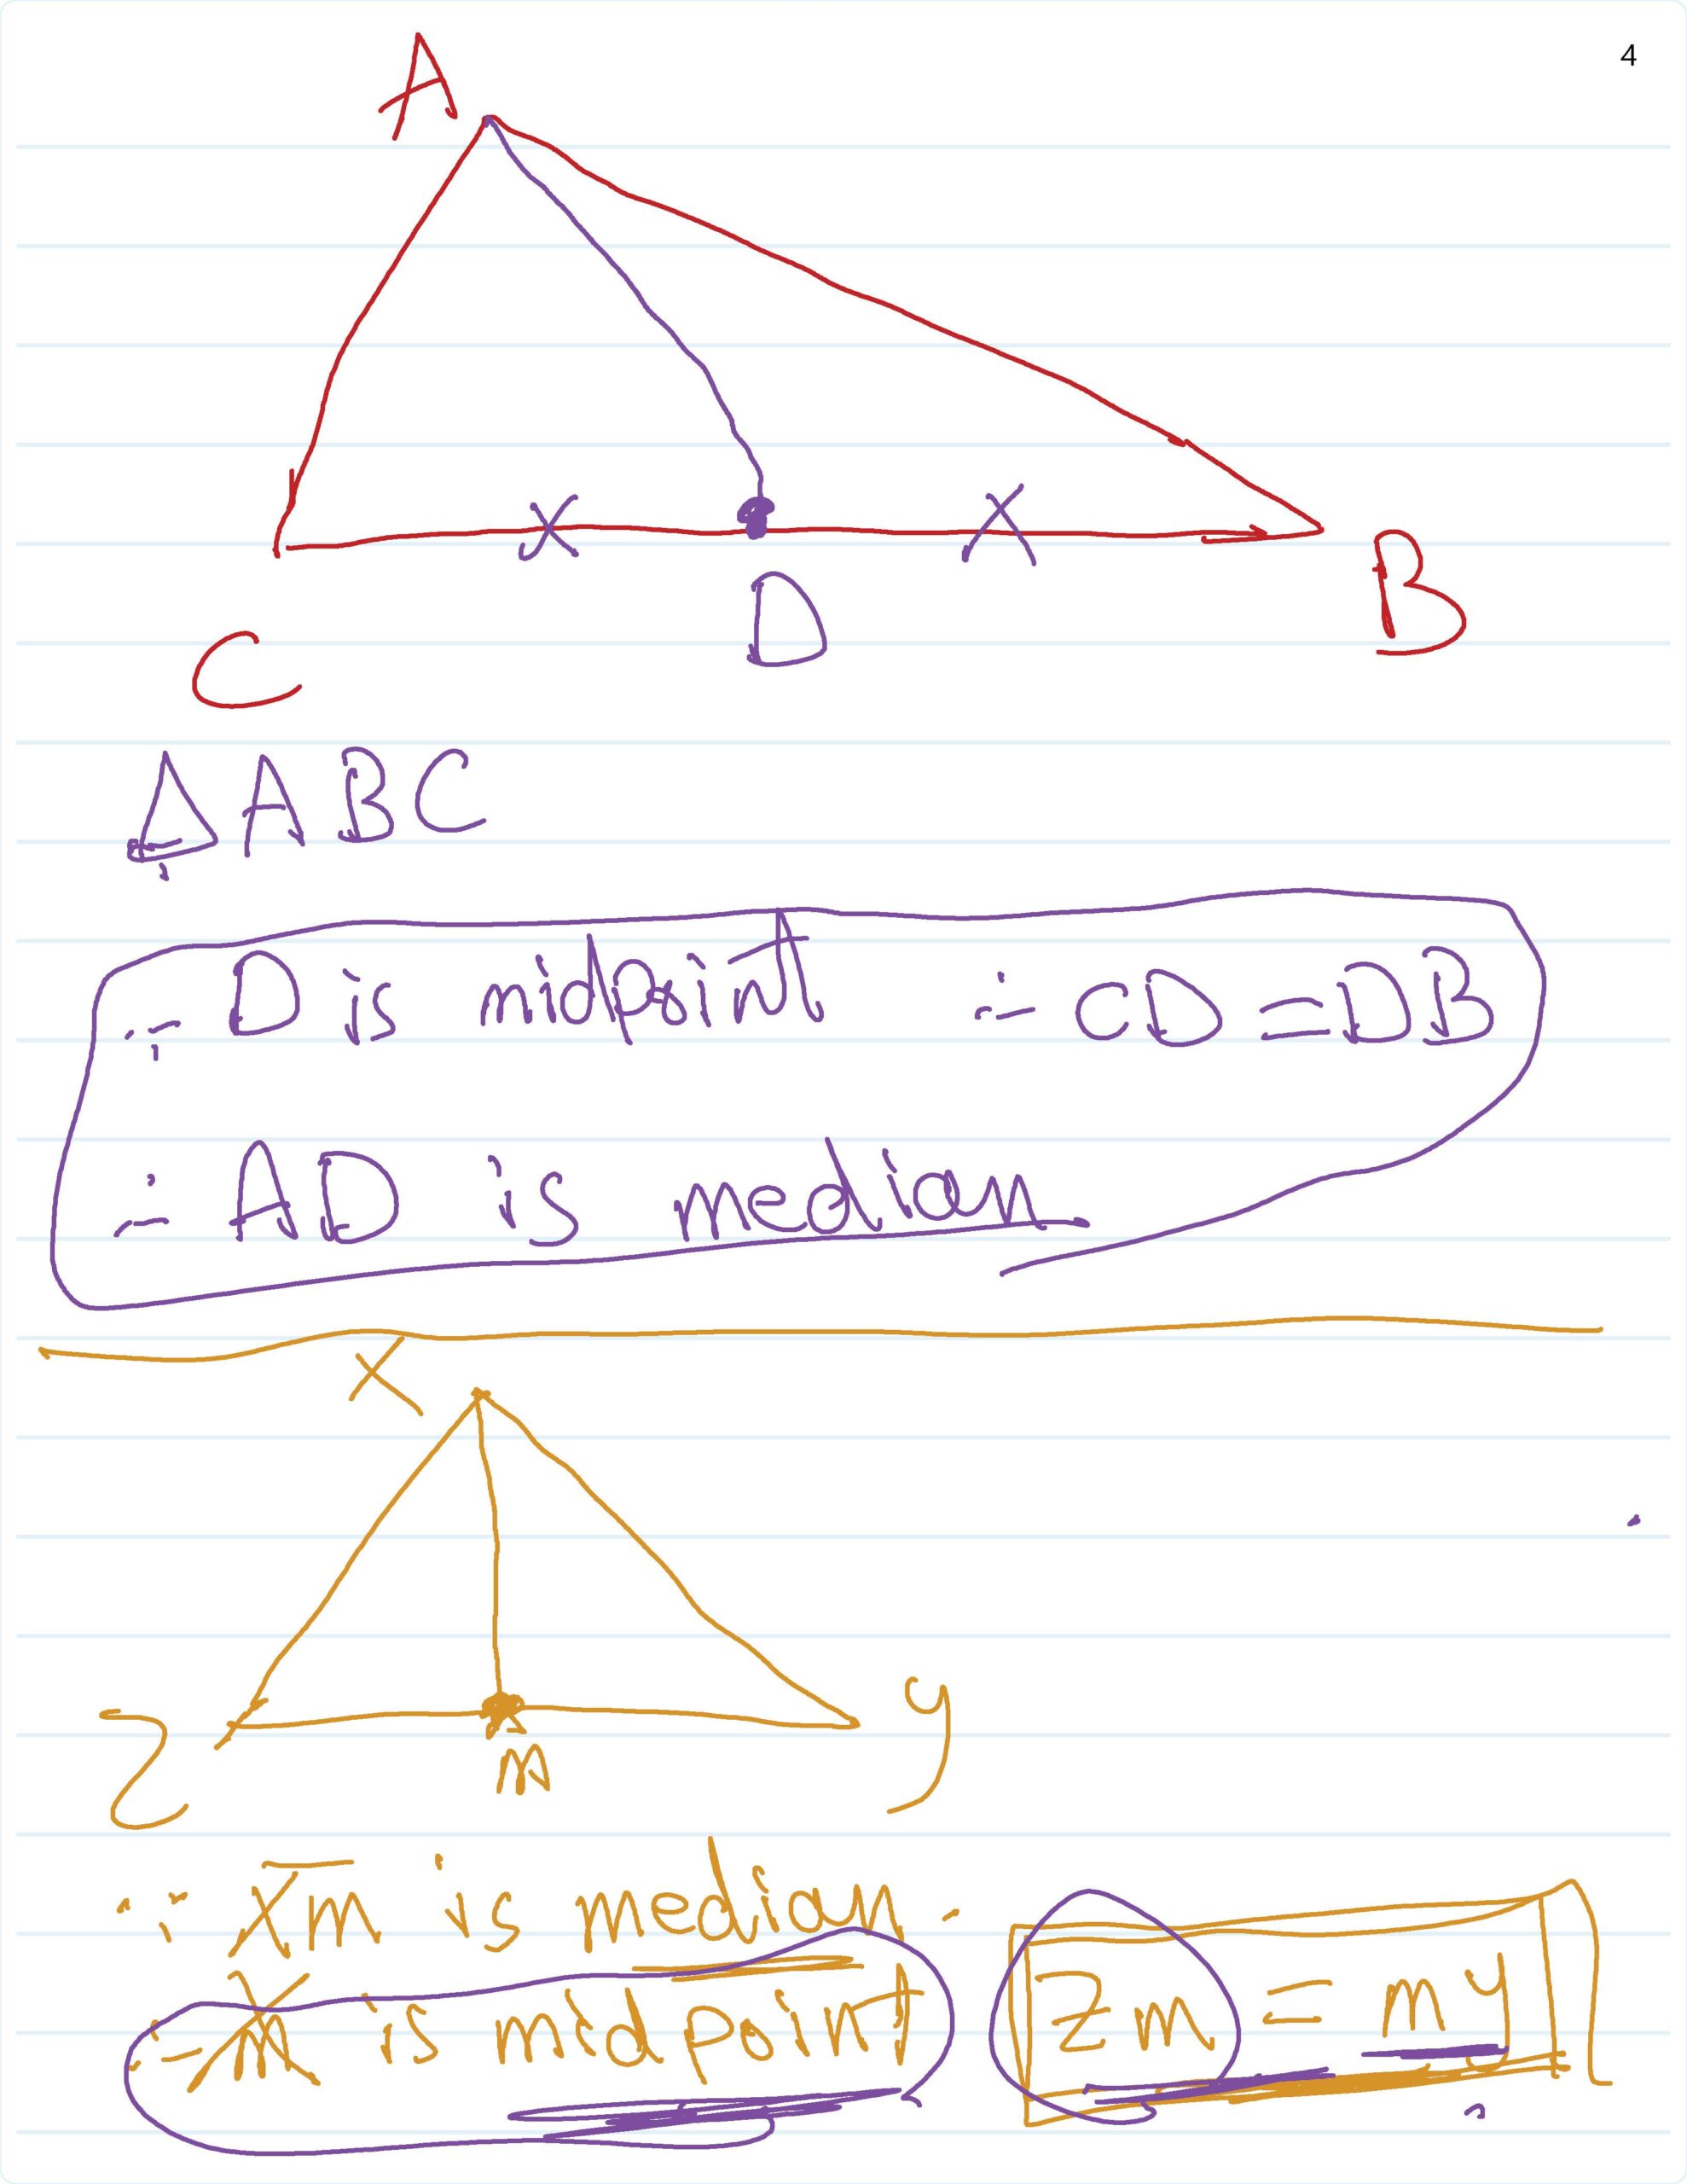 4
A
B
D
C
Δ ABC
∵ D is midpoint. ∴ CD = DB
∴ AD is median
X
y
Z
m
∵ Xm is median
∴ m is midpoint Zm = my